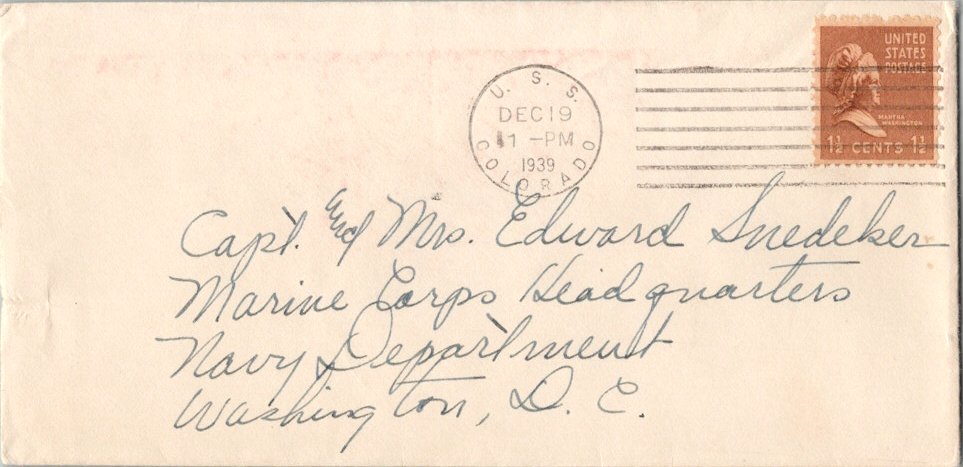 U. S. S.
DEC 19
1 -PM
1939
COLORADO
UNITED
STATES
POSTAGE
MARTHA
WASHINGTON
1½ CENTS 1½
Capt. and Mrs. Edward Snedeker
Marine Corps Headquarters
Navy Department
Washington, D. C.